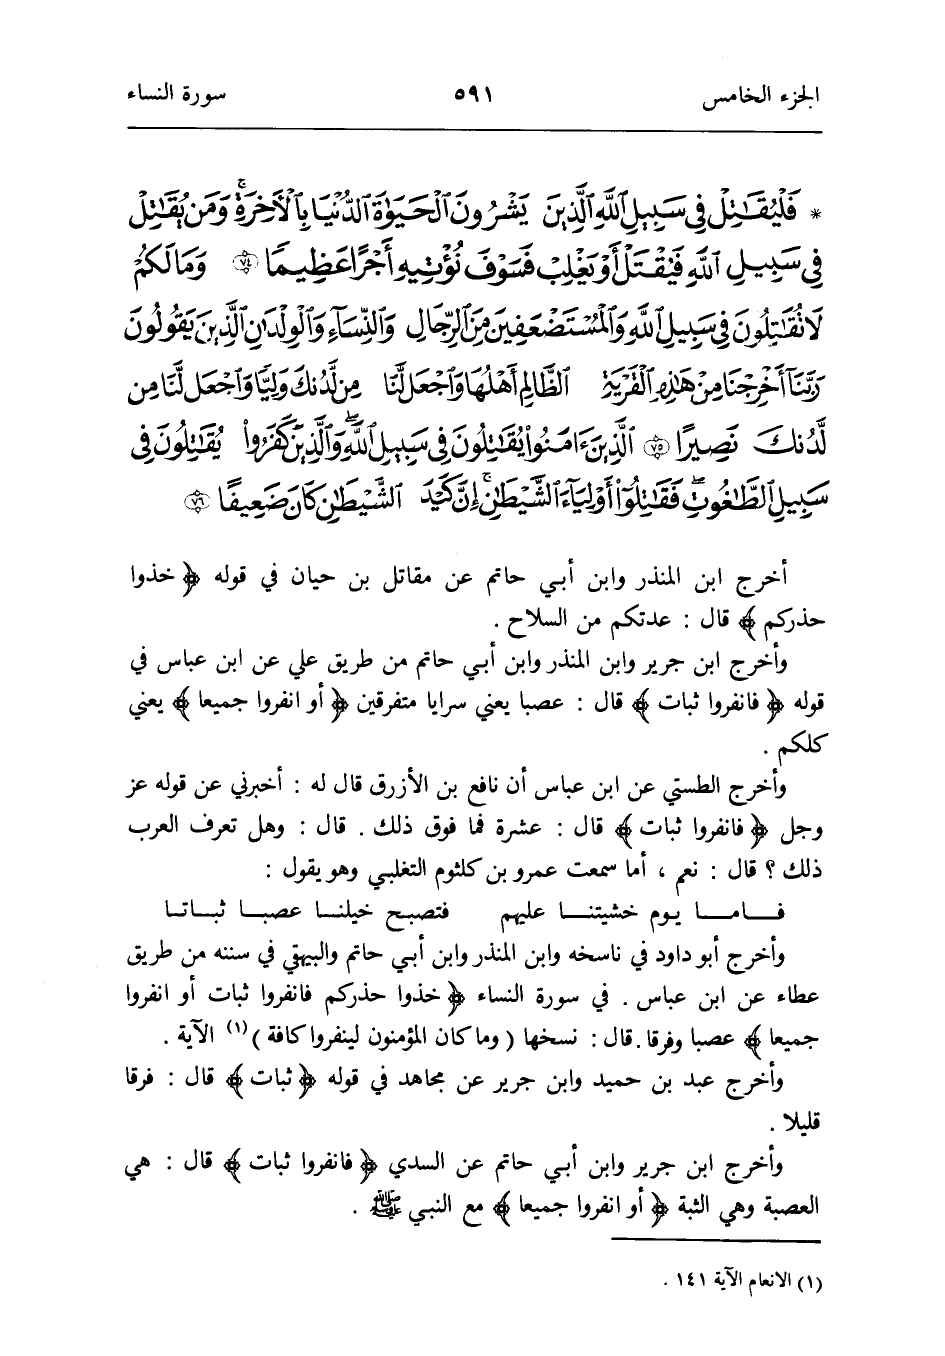 الجزء الخامس ٥٩١ سورة النساء
* فَلْيُقَـٰتِلْ فِى سَبِيلِ ٱللَّهِ ٱلَّذِينَ يَشْرُونَ ٱلْحَيَوٰةَ ٱلدُّنْيَا بِٱلْأَخِرَةِ ۚ وَمَن يُقَـٰتِلْ
فِى سَبِيلِ ٱللَّهِ فَيُقْتَلْ أَوْ يَغْلِبْ فَسَوْفَ نُؤْتِيهِ أَجْرًا عَظِيمًا ﴿٧٤﴾ وَمَا لَكُمْ
لَا تُقَـٰتِلُونَ فِى سَبِيلِ ٱللَّهِ وَٱلْمُسْتَضْعَفِينَ مِنَ ٱلرِّجَالِ وَٱلنِّسَآءِ وَٱلْوِلْدَٰنِ ٱلَّذِينَ يَقُولُونَ
رَبَّنَآ أَخْرِجْنَا مِنْ هَـٰذِهِ ٱلْقَرْيَةِ ٱلظَّالِمِ أَهْلُهَا وَٱجْعَل لَّنَا مِن لَّدُنكَ وَلِيًّا وَٱجْعَل لَّنَا مِن
لَّدُنكَ نَصِيرًا ﴿٧٥﴾ ٱلَّذِينَ ءَامَنُوا۟ يُقَـٰتِلُونَ فِى سَبِيلِ ٱللَّهِ ۖ وَٱلَّذِينَ كَفَرُوا۟ يُقَـٰتِلُونَ فِى
سَبِيلِ ٱلطَّـٰغُوتِ ۖ فَقَـٰتِلُوٓا۟ أَوْلِيَآءَ ٱلشَّيْطَـٰنِ ۚ إِنَّ كَيْدَ ٱلشَّيْطَـٰنِ كَانَ ضَعِيفًا ﴿٧٦﴾
أخرج ابن المنذر وابن أبي حاتم عن مقاتل بن حيان في قوله ﴿ خذوا
حذركم ﴾ قال : عدتكم من السلاح .
وأخرج ابن جرير وابن المنذر وابن أبي حاتم من طريق علي عن ابن عباس في
قوله ﴿ فانفروا ثبات ﴾ قال : عصبا يعني سرايا متفرقين ﴿ أو انفروا جميعا ﴾ يعني
كلكم .
وأخرج الطستي عن ابن عباس أن نافع بن الأزرق قال له : أخبرني عن قوله عز
وجل ﴿ فانفروا ثبات ﴾ قال : عشرة فما فوق ذلك . قال : وهل تعرف العرب
ذلك ؟ قال : نعم ، أما سمعت عمرو بن كلثوم التغلبي وهو يقول :
فــامــا يـوم خشيتنــا عليهم فتصبـح خيلنــا عصبــا ثبــاتـا
وأخرج أبو داود في ناسخه وابن المنذر وابن أبي حاتم والبيهقي في سننه من طريق
عطاء عن ابن عباس . في سورة النساء ﴿ خذوا حذركم فانفروا ثبات أو انفروا
جميعا ﴾ عصبا وفرقا . قال : نسخها ( وما كان المؤمنون لينفروا كافة ) (١) الآية .
وأخرج عبد بن حميد وابن جرير عن مجاهد في قوله ﴿ ثبات ﴾ قال : فرقا
قليلا .
وأخرج ابن جرير وابن أبي حاتم عن السدي ﴿ فانفروا ثبات ﴾ قال : هي
العصبة وهي الثبة ﴿ أو انفروا جميعا ﴾ مع النبي ﷺ .
(١) الانعام الآية ١٤١ .